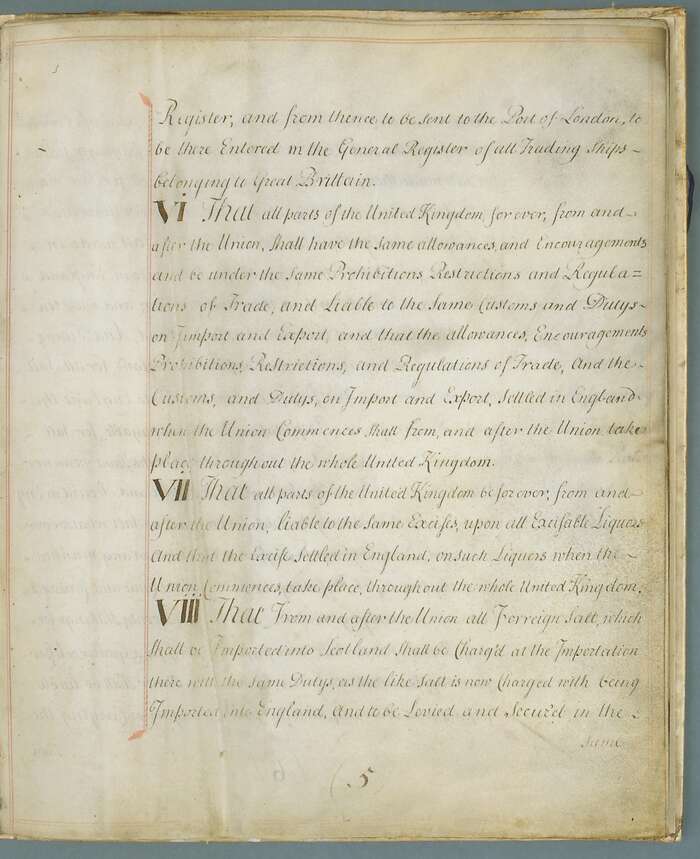 Register, and from thence to be sent to the Port of London, to
be there Entered in the General Register of all Trading Ships
belonging to Great Brittain.
VI That all parts of the United Kingdom for ever, from and
after the Union, shall have the same allowances, and Encouragements
and be under the same Prohibitions, Restrictions and Regula=
tions of Trade, and Liable to the same Customs and Dutys
on Jmport and Export, and that the allowances, Encouragements
Prohibitions, Restrictions, and Regulations of Trade, And the
Customs, and Dutys, on Jmport and Export, settled in England
when the Union Commences shall from, and after the Union take
place throughout the whole United Kingdom.
VII That all parts of the United Kingdom be for ever, from and
after the Union, liable to the same Excises, upon all Excisable Liquors
And that the Excise settled in England, on such Liquors when the
Union Commences, take place, throughout the whole United Kingdom.
VIII That From and after the Union all Forreign Salt, which
shall be Jmported into Scotland shall be Charg'd at the Jmportation
there with the same Dutys, as the like Salt is now Charged with being
Jmported into England, And to be Levied and Secur'd in the
same
(5)